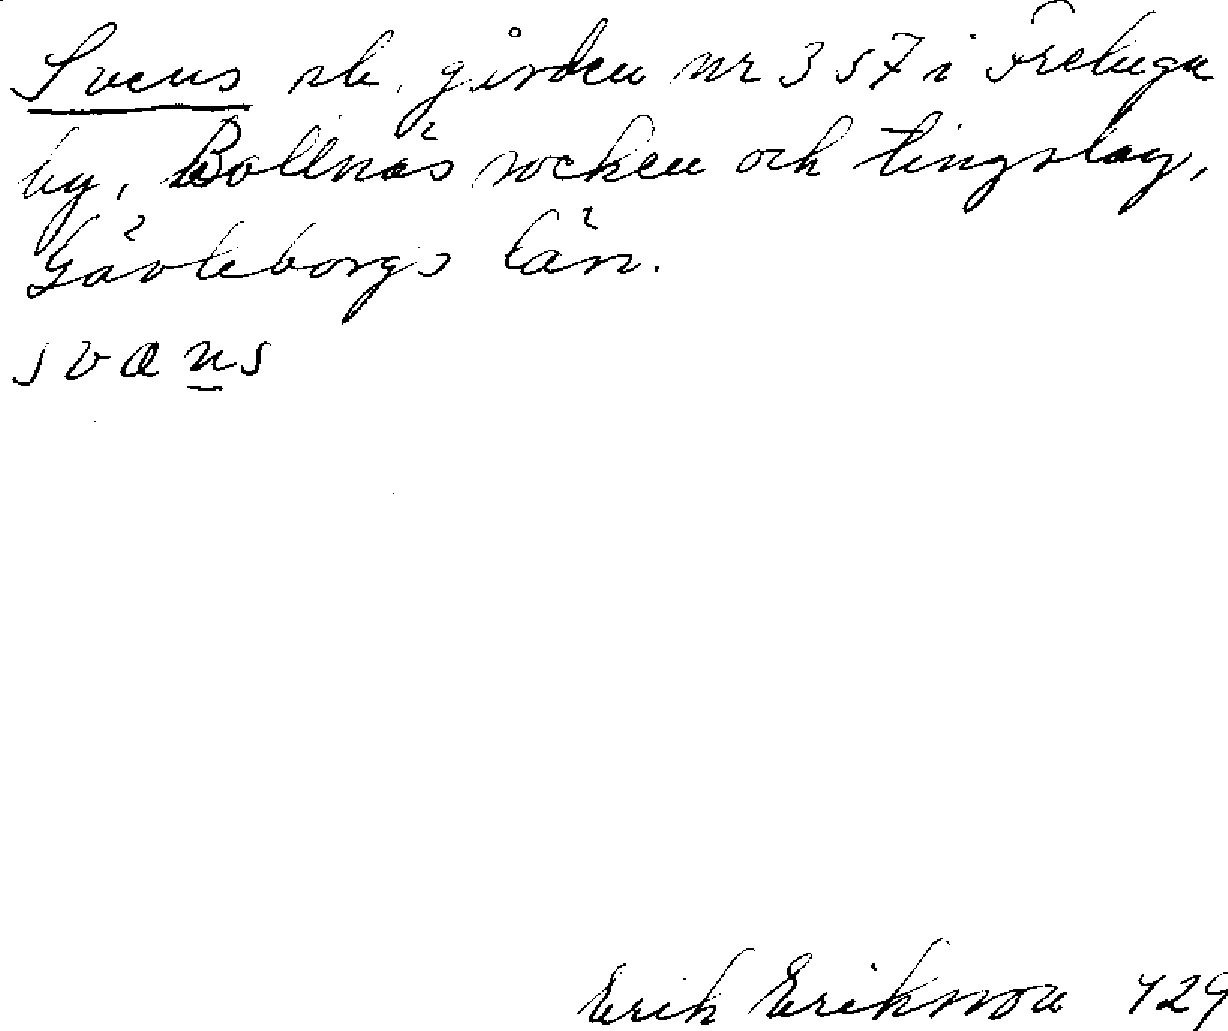 Svens sk. gården nr 357 i Freluga
by, Bollnäs socken och tingslag,
Gävleborgs län.
svans
Erik Eriksson 429